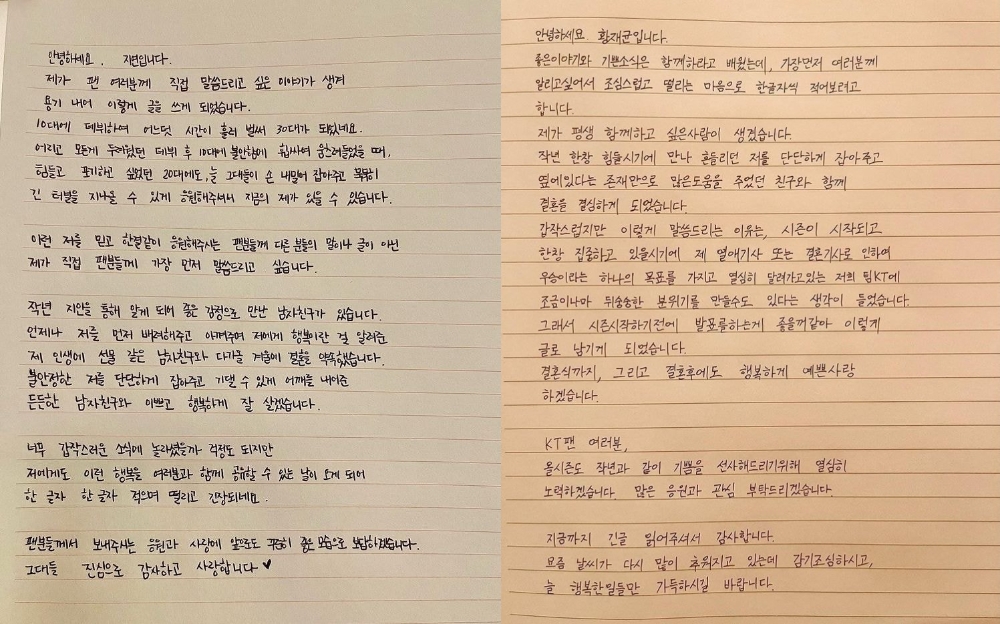 안녕하세요. 지연입니다.
제가 팬 여러분께 직접 말씀드리고 싶은 이야기가 생겨
용기 내어 이렇게 글을 쓰게 되었습니다.
10대에 데뷔하여 어느덧 시간이 흘러 벌써 30대가 되었네요.
어리고 모든게 두려웠던 데뷔 후 10대에 불안함에 휩싸여 움츠려들었을 때,
힘들고 포기하고 싶었던 20대에도, 늘 그대들이 손 내밀어 잡아주고 묵묵히
긴 터널을 지나올 수 있게 응원해주셔서 지금의 제가 있을 수 있습니다.
이런 저를 믿고 한결같이 응원해주시는 팬분들께 다른 분들의 말이나 글이 아닌
제가 직접 팬분들께 가장 먼저 말씀드리고 싶습니다.
작년 지인을 통해 알게 되어 좋은 감정으로 만난 남자친구가 있습니다.
언제나 저를 먼저 배려해주고 아껴주며 저에게 행복이란 걸 알려준
제 인생에 선물 같은 남자친구와 다가올 겨울에 결혼을 약속했습니다.
불안정한 저를 단단하게 잡아주고 기댈 수 있게 어깨를 내어준
든든한 남자친구와 이쁘고 행복하게 잘 살겠습니다.
너무 갑작스러운 소식에 놀라셨을까 걱정도 되지만
저에게도 이런 행복을 여러분과 함께 공유할 수 있는 날이 오게 되어
한 글자 한 글자 적으며 떨리고 긴장되네요.
팬분들께서 보내주시는 응원과 사랑에 앞으로도 꾸준히 좋은 모습으로 보답하겠습니다.
그대들 진심으로 감사하고 사랑합니다♥
안녕하세요. 황재균입니다.
좋은이야기와 기쁜소식은 함께하라고 배웠는데, 가장먼저 여러분께
알리고싶어서 조심스럽고 떨리는 마음으로 한글자씩 적어보려고
합니다.
제가 평생 함께하고 싶은사람이 생겼습니다.
작년 한창 힘들시기에 만나 흔들리던 저를 단단하게 잡아주고
옆에있다는 존재만으로 많은도움을 주었던 친구와 함께
결혼을 결심하게 되었습니다.
갑작스럽지만 이렇게 말씀드리는 이유는, 시즌이 시작되고
한창 집중하고 있을시기에 제 열애기사 또는 결혼기사로 인하여
우승이라는 하나의 목표를 가지고 열심히 달려가고있는 저희 팀KT에
조금이나마 뒤숭숭한 분위기를 만들수도 있다는 생각이 들었습니다.
그래서 시즌시작하기전에 발표를하는게 좋을꺼같아 이렇게
글로 남기게 되었습니다.
결혼식까지, 그리고 결혼후에도 행복하게 예쁜사랑
하겠습니다.
KT팬 여러분,
올시즌도 작년과 같이 기쁨을 선사해드리기위해 열심히
노력하겠습니다. 많은 응원과 관심 부탁드리겠습니다.
지금까지 긴글 읽어주셔서 감사합니다.
요즘 날씨가 다시 많이 추워지고 있는데 감기조심하시고,
늘 행복한일들만 가득하시길 바랍니다.